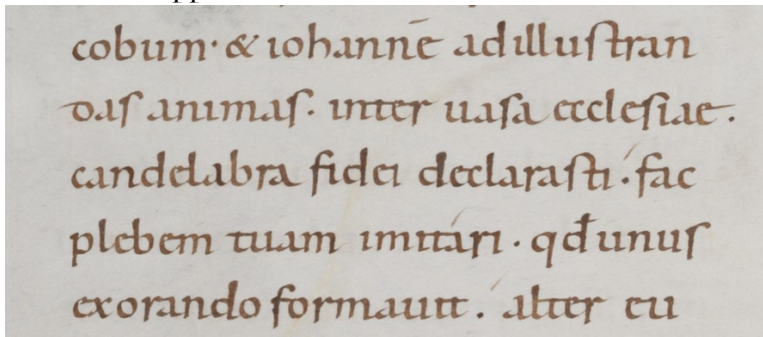 cobum· & iohannē ad illuſtran
daſ animaſ· inter uaſa eccleſiae·
candelabra fidei declaraſti· fac
plebem tuam imitári· qđ unuſ
exorando formauit· alter eu